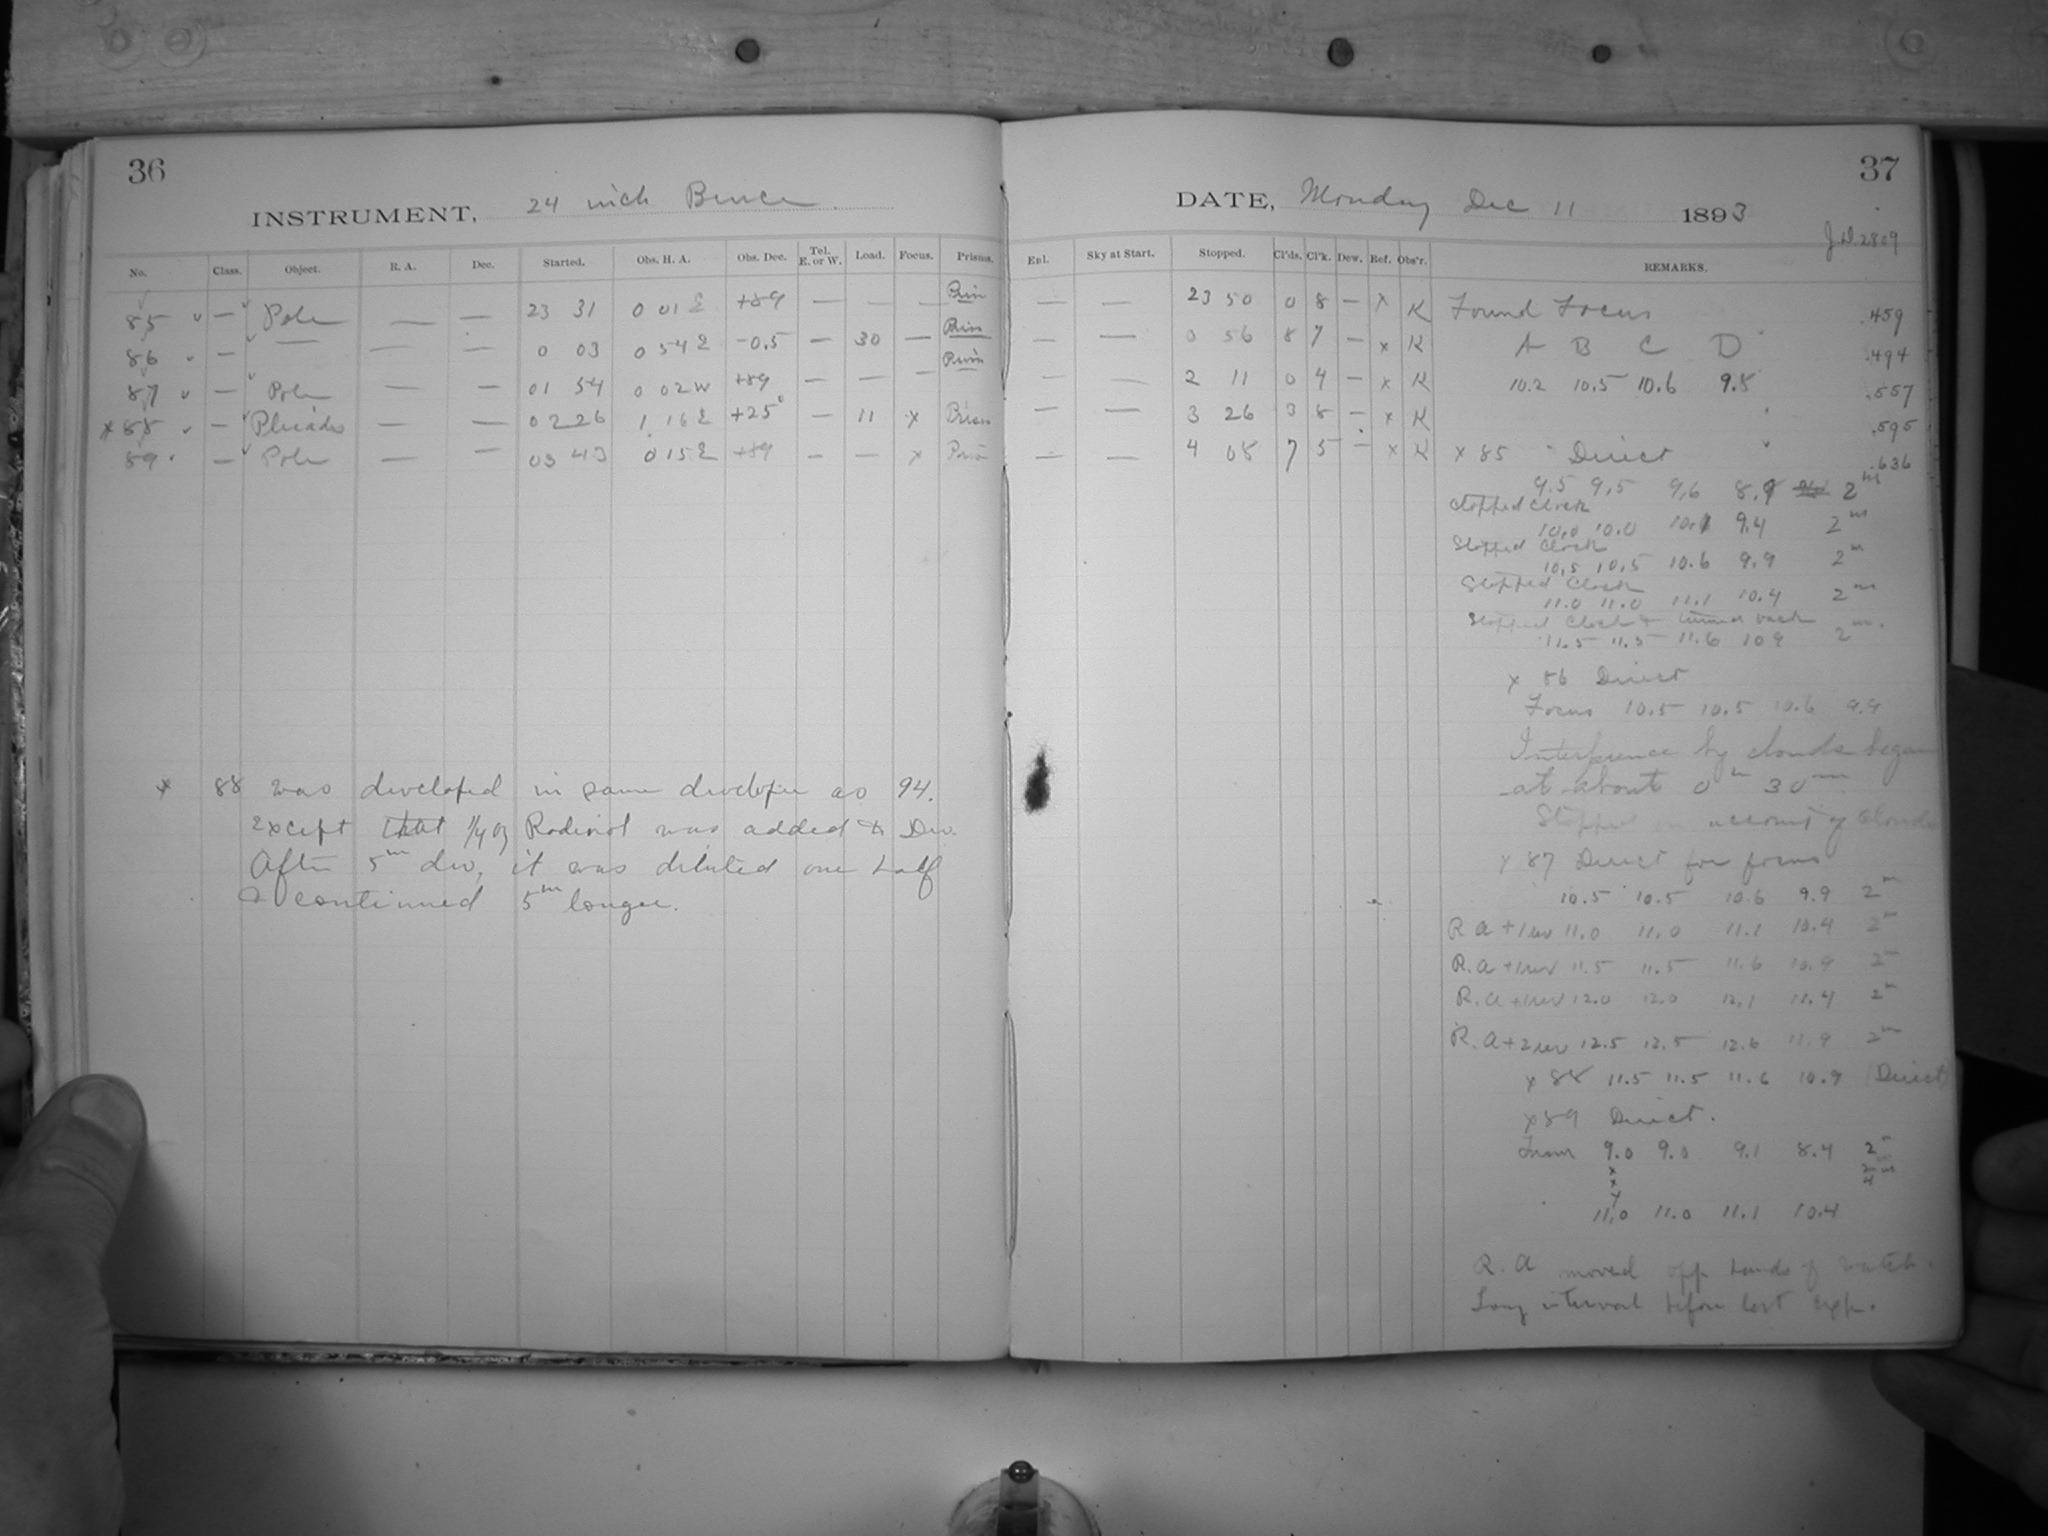 36
INSTRUMENT, 24 inch Bruce
No. Class. Object. R. A. Dec. Started. Obs. H. A. Obs. Dec. Tel. E. or W. Load. Focus. Prisms.
85 — Pole — — 23 31 0 01 E +89 — — —
86 — — — 0 03 0 54 E -0.5 — 30 —
87 — Pole — — 01 54 0 02 W +89 — — —
x 88 — Pleiades — — 02 26 1 16 E +25° — 11 x
89 — Pole — — 03 43 0 15 E +89 — — x
x 88 was developed in same developer as 94.
Except that 1/4 oz Rodinol was added to Dev.
After 5m dev, it was diluted one half
& continued 5m longer.
37
DATE, Monday Dec 11 1893
J.D. 2809
Epl. Sky at Start. Stopped. Cl'ds. Cl'k. Dew. Ref. Obs'r. REMARKS.
— — 23 50 0 8 — x K Found Focus .459
— — 0 56 8 7 — x K A B C D .494
— — 2 11 0 4 — x K 10.2 10.5 10.6 9.8 .557
— — 3 26 3 8 — x K .595
— — 4 08 7 5 — x K x 85 Direct .636
9.5 9.5 9.6 8.9 2m
Stopped Clock
10.0 10.0 10.1 9.4 2m
Stopped Clock
10.5 10.5 10.6 9.9 2m
Stopped Clock
11.0 11.0 11.1 10.4 2m
Stopped Clock & turned back
11.5 11.5 11.6 10 9 2m.
x 86 Direct
Focus 10.5 10.5 10.6 9.9
Interference by clouds began
at about 0h 30m
Stopped on account of clouds
x 87 Direct for focus
10.5 10.5 10.6 9.9 2m
R a +1 rev 11.0 11.0 11.1 10.4 2m
R. a +1 rev 11.5 11.5 11.6 10.9 2m
R. a +1 rev 12.0 12.0 12.1 11.4 2m
R. a +2 rev 12.5 12.5 12.6 11.9 2m
x 88 11.5 11.5 11.6 10.9 (Direct)
x 89 Direct.
From 9.0 9.0 9.1 8.4 2m
x
x
x
11.0 11.0 11.1 10.4
R. a moved opp hands of watch.
Long interval before last exp.